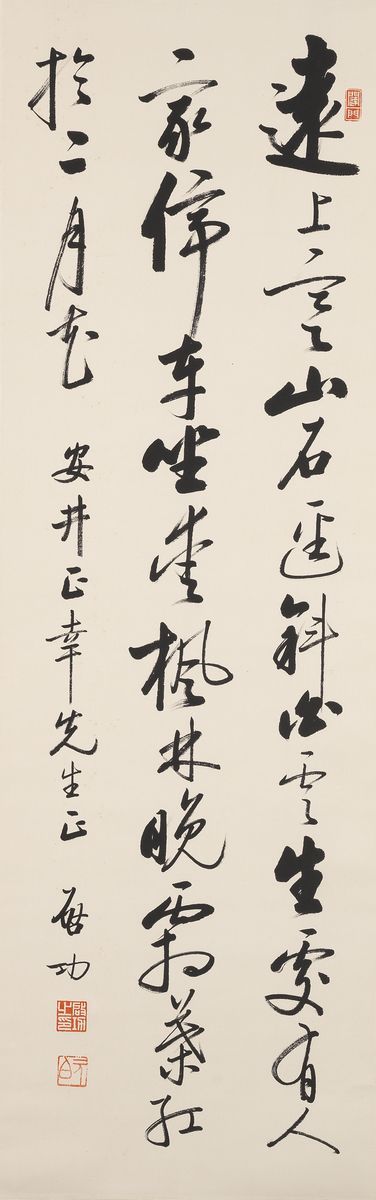 遠上寒山石逕斜白雲生處有人
家停車坐愛楓林晚霜葉紅
於二月花 安井正幸先生正 啟功
啟功之印
元白